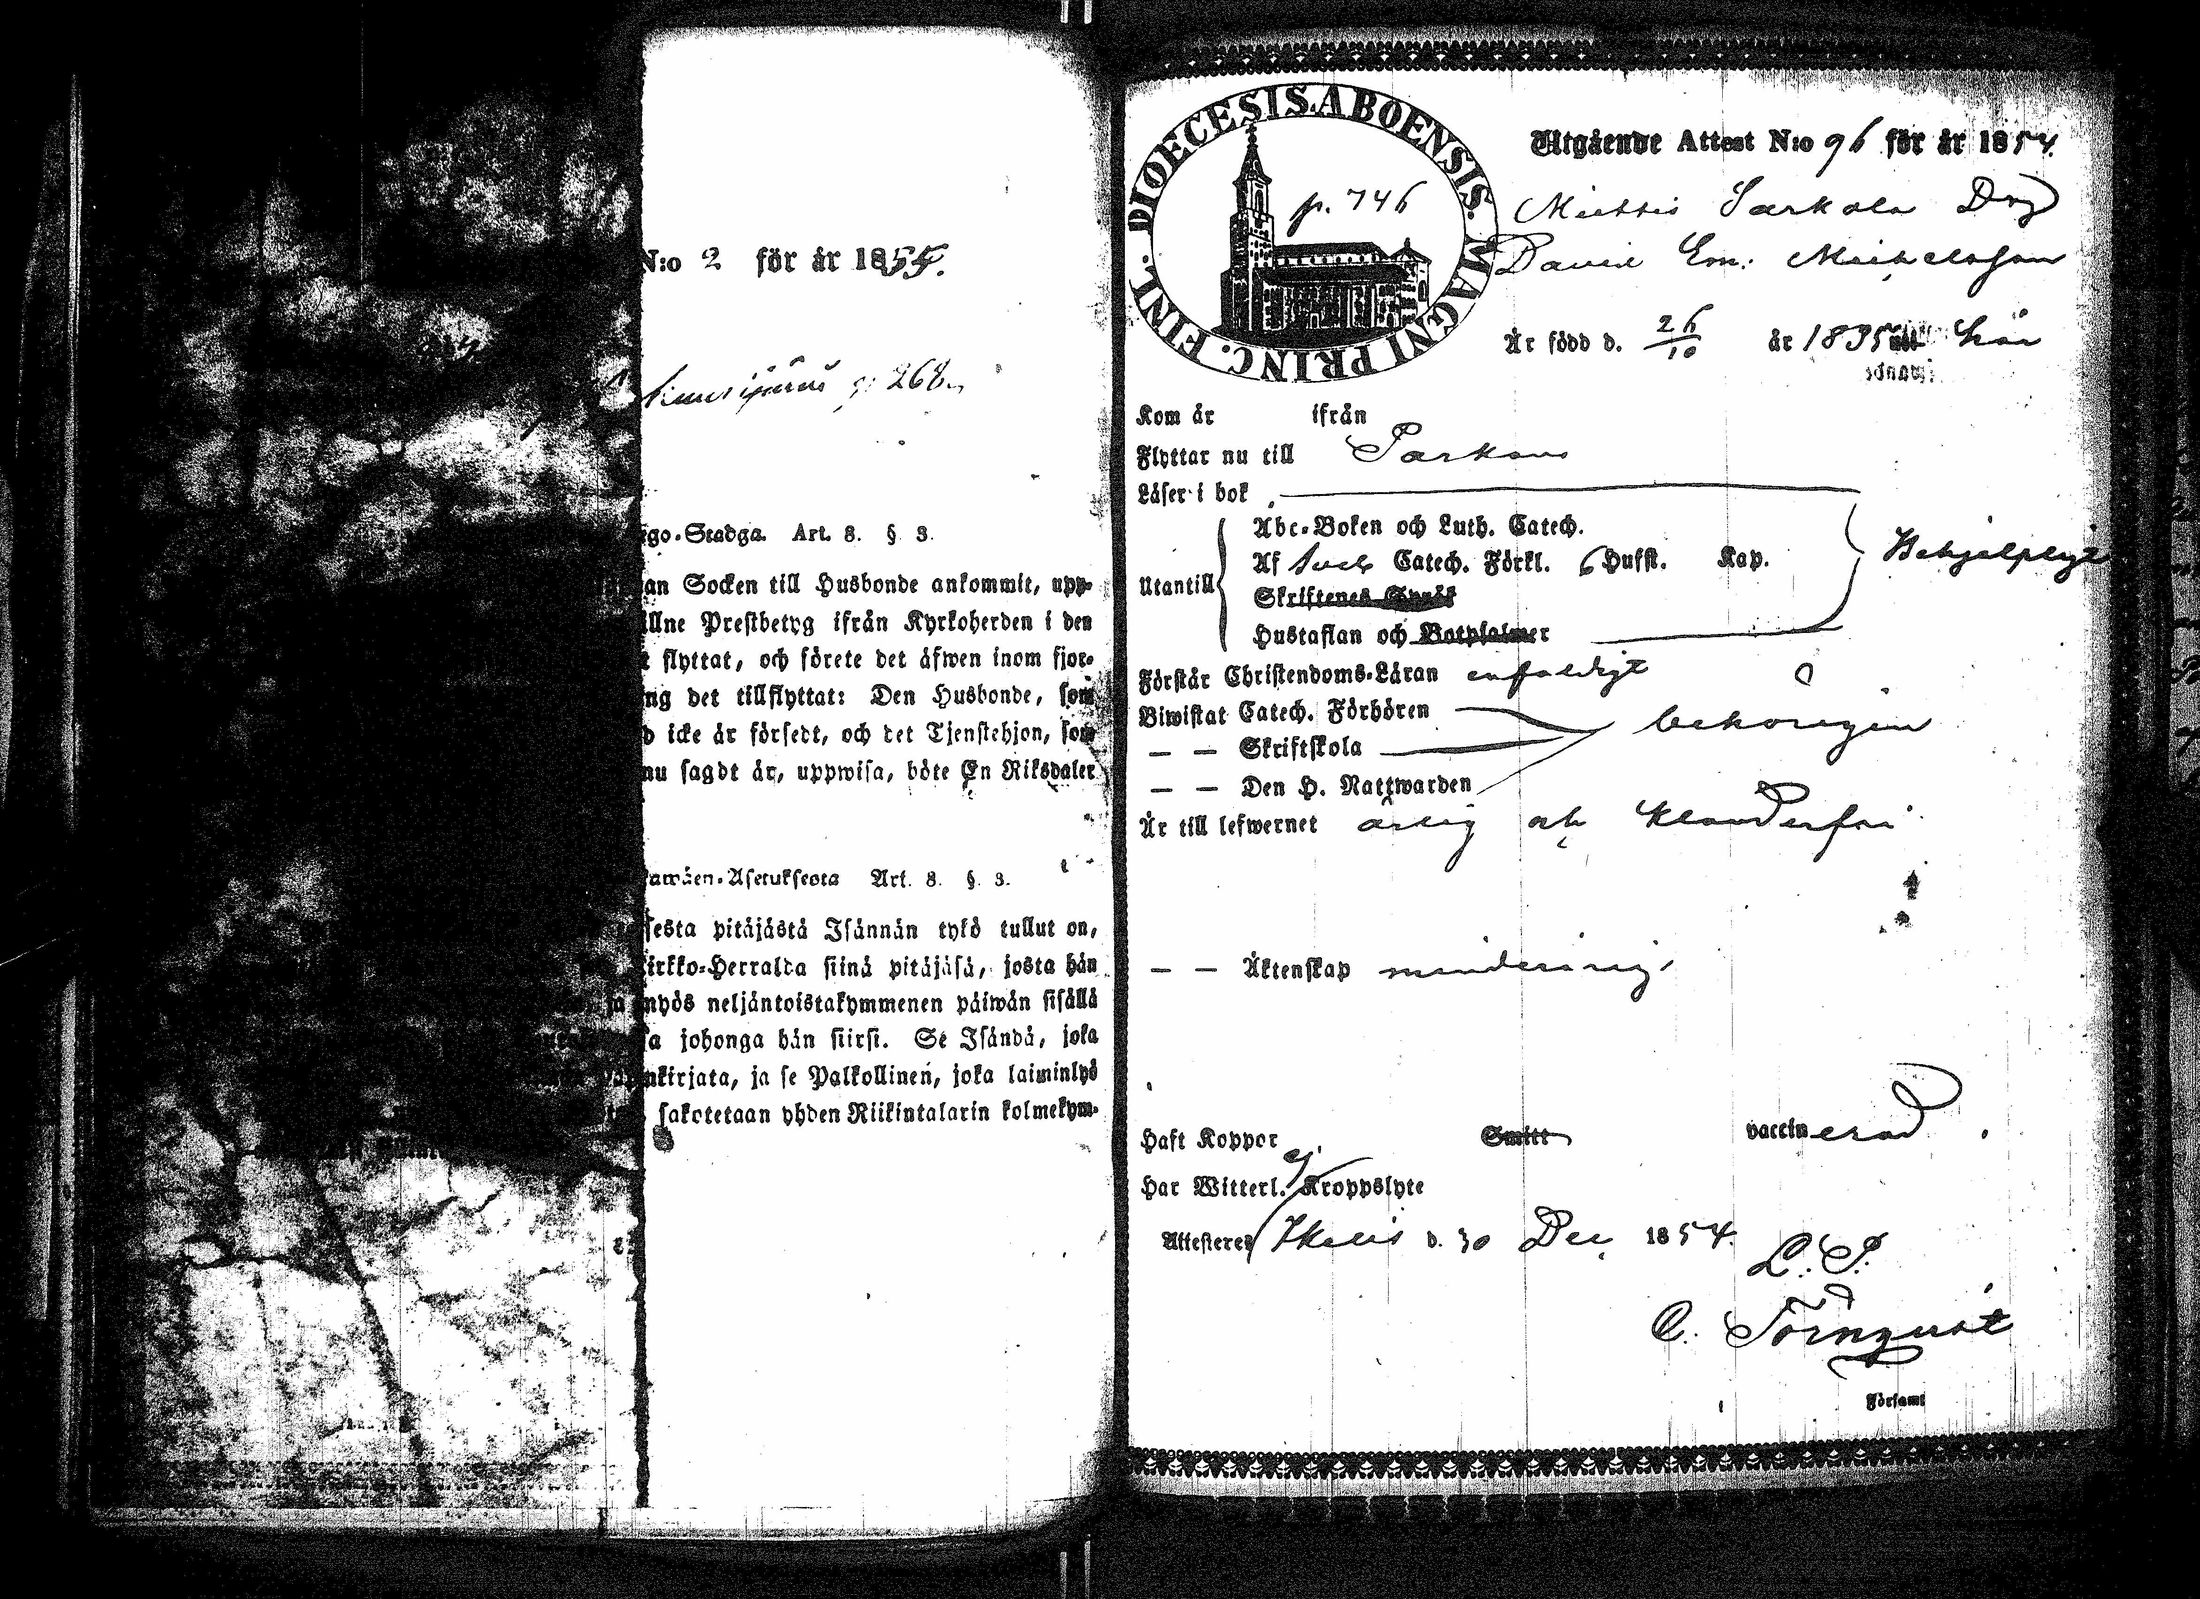 N:o 2 för år 1855.
p. 268.
ego-Stadga. Art. 8. § 3.
an Socken till Husbonde ankommit, upp-
llne Prestbetyg ifrån Kyrkoherden i den
t flyttat, och förete det äfwen inom fjor-
ng det tillflyttat: Den Husbonde, som
d icke är försedt, och det Tjenstehjon, som
nu sagdt är, uppwisa, böte En Riksdaler
Art. 8. §. 3.
sesta pitäjästä Isännän tykö tullut on,
irkko-Herralta siinä pitäjäsä, josta hän
ja myös neljäntoistakymmenen päiwän sisällä
sa johonga hän siirsi. Se Isändä, joka
nkirjata, ja se Palkollinen, joka laiminlyö
sakotetaan yhden Riikintalarin kolmekym-
DIOECESIS ABOENSIS. MAGNI PRINC. FINL.
p. 746
Utgående Attest N:o 96 för år 1854.
Mattis Sarkola Drg
David Em. Michelsson
Är född d. 26/10 år 1835 här
Kom år ifrån
Flyttar nu till Parkano
Läser i bok
Abc-Boken och Luth. Catech.
Utantill Af Sveb Catech. Förkl. 6 Hufst. Kap. Behjelpligt
Skriftenes Språk
Hustaflan och Botpsalmer
Förstår Christendoms-Läran enfaldigt
Biwistat Catech. Förhören behörigen
— — Skriftskola
— — Den H. Nattwarden
Är till lefwernet ärlig och klanderfri
— — Äktenskap minderårig.
Haft Koppor Smitt vaccinerad
Har Witterl. ej Kroppslyte
Attesteres Ikalis d. 30 Dec. 1854.
L. S.
C. Törnqvist
Församl